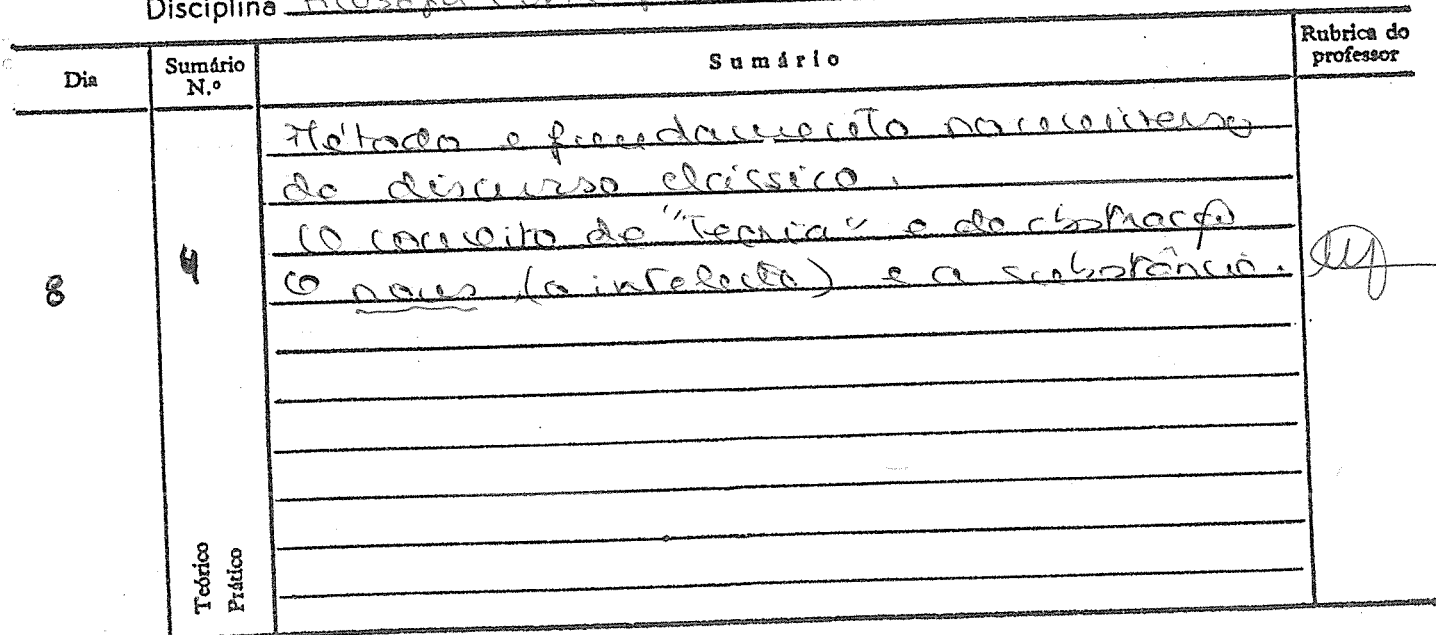 Disciplina Filosofia
Dia
Sumário N.º
Sumário
Rubrica do professor
Método e fundamento
do discurso clássico.
8
4
O conceito de "Teoria" e de abstração
O nous (o intelecto) e a substância.
Teórico
Prático